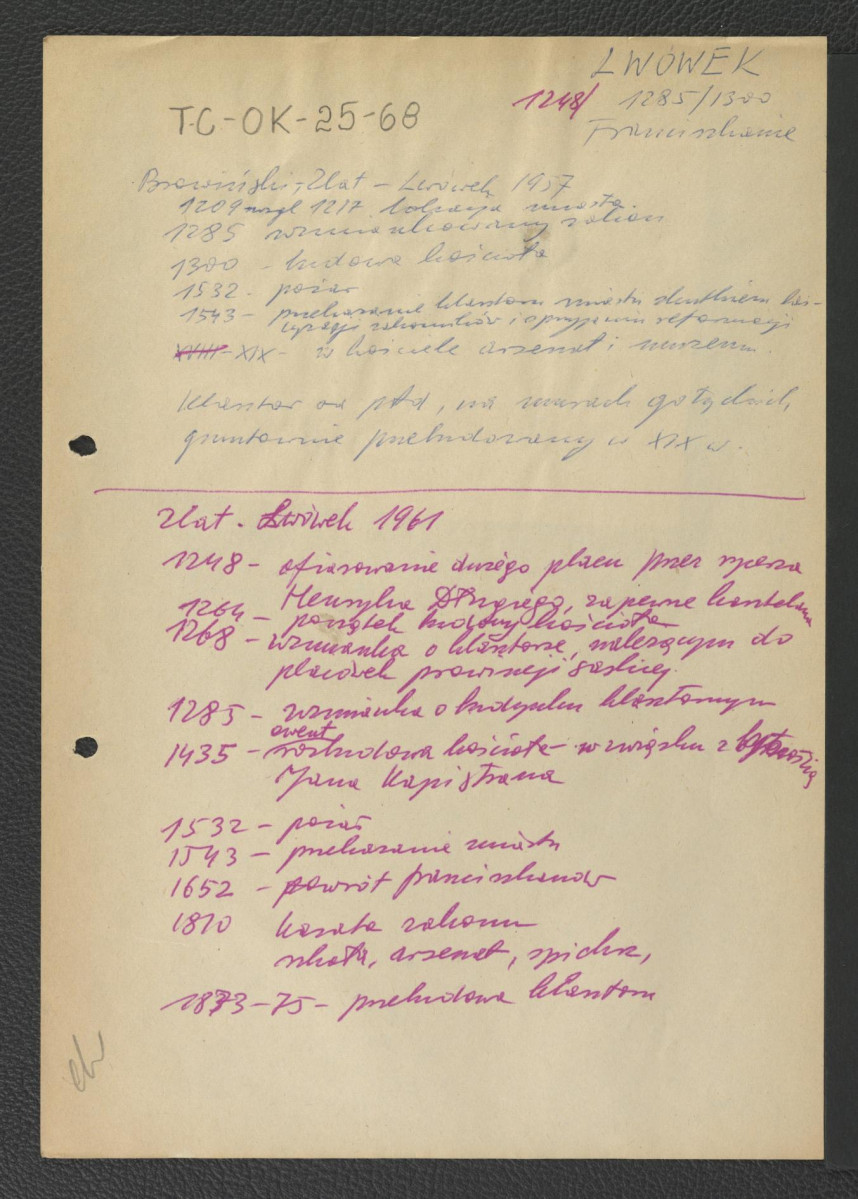 LWÓWEK
1248/ 1285/1300
Franciszkanie
T-C-OK-25-68
Zlat - Lwówek 1957
1209 wzgl 1217 lokacja miasta
1285 wzmiankowany zakon
1300 - budowa kościoła
1532 - pożar
1543 - przekazanie klasztoru miastu skutkiem
zakonników i sprzyjaniu reformacji
XVIII - XIX - w kościele arsenał i muzeum.
Klasztor od płd, na murach gotyckich,
gruntownie przebudowany w XIX w.
Zlat. Lwówek 1961
1248 - ofiarowanie dużego placu przez rycerza
Henryka Długiego, zapewne kasztelana
1264 - początek budowy kościoła
1268 - wzmianka o klasztorze, należącym do
placówek prowincji saskiej.
1285 - wzmianka o budynku klasztornym
ewent
1435 - rozbudowa kościoła w związku z bytnością
Jana Kapistrana
1532 - pożar
1543 - przekazanie miastu
1652 - powrót franciszkanów
1810 kasata zakonu
szkoła, arsenał, spichrz,
1873-75 - przebudowa klasztoru